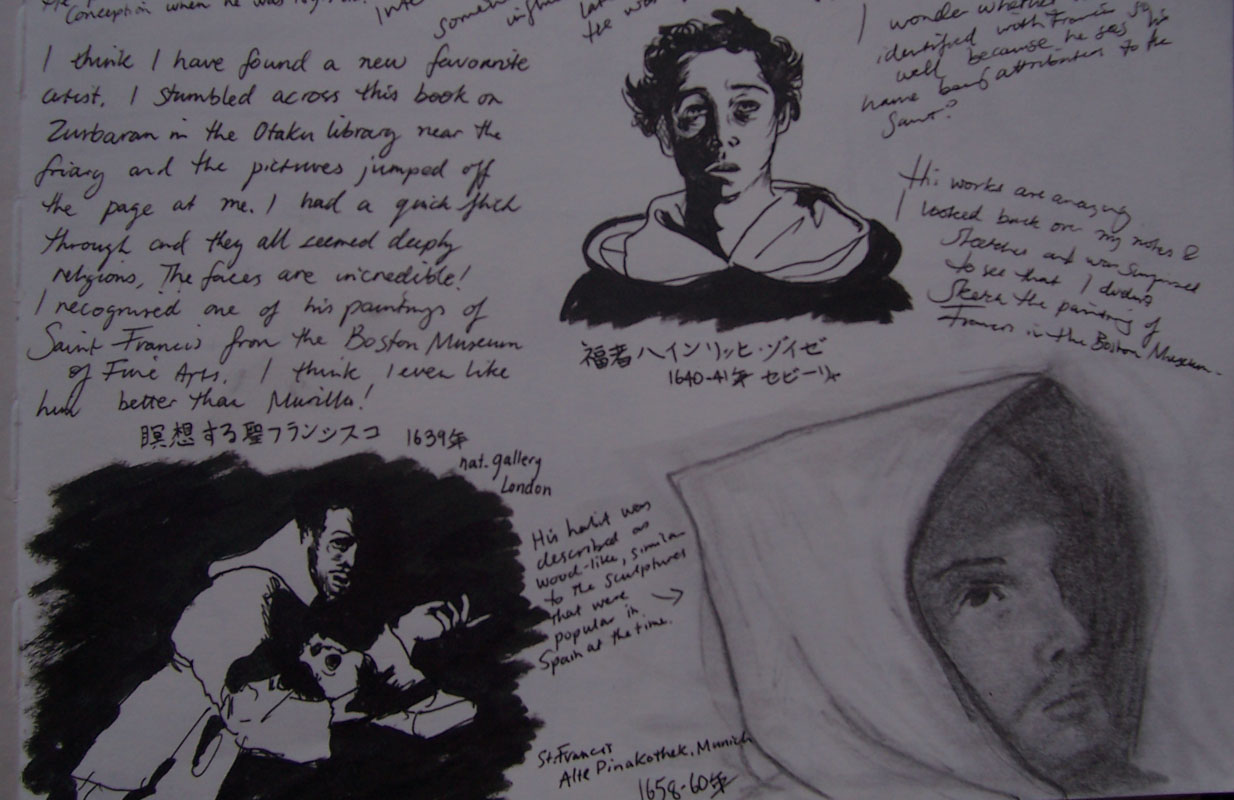 Conception when he was
I think I have found a new favourite
artist. I stumbled across this book on
Zurbaran in the Otaku library near the
friary and the pictures jumped off
the page at me. I had a quick flick
through and they all seemed deeply
religious. The faces are incredible!
I recognised one of his paintings of
Saint Francis from the Boston Museum
of Fine Arts. I think I even like
him better than Murillo!
瞑想する聖フランシスコ 1639年
nat. gallery
London
I wonder whether
identified with Francis so
well because he sees his
name being attributed to the
Saint?
His works are amazing.
I looked back over my notes &
sketches and was surprised
to see that I didn't
sketch the painting of
Francis in the Boston Museum.
福者ハインリッヒ・ゾイゼ
1640-41年 セビーリャ
His habit was
described as
wood-like, similar
to the sculptures
that were
popular in
Spain at the time.
St. Francis
Alte Pinakothek, Munich
1658-60年